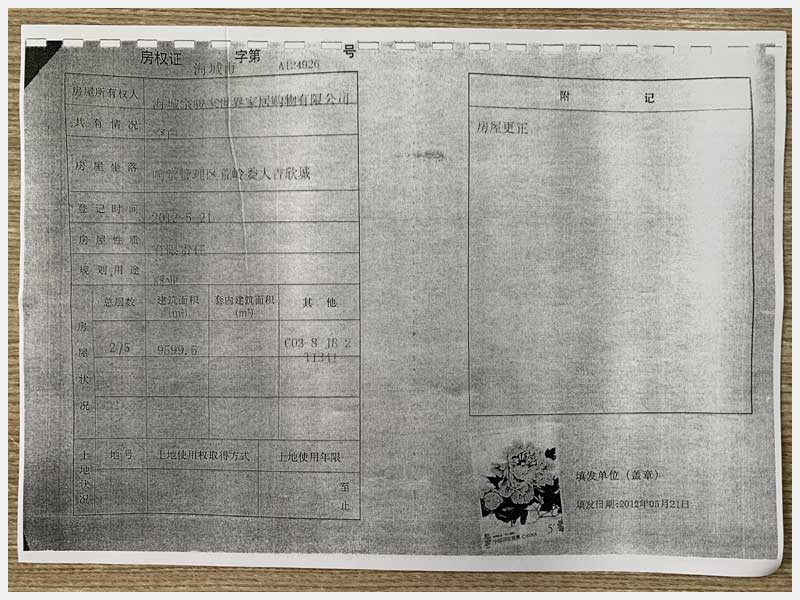 房权证 海城市 字第 A124926 号
房屋所有权人 海城 世界家居购物有限公司
共有情况 空白
房屋坐落 管理区荒岭委人吉欣城
登记时间 2012-5-21
房屋性质 有限责任
规划用途 商业
房屋状况
总层数 建筑面积(m²) 套内建筑面积(m²) 其他
2/5 9599.6 C03-8-18-2
11341
土地状况
地号 土地使用权取得方式 土地使用年限
至
止
附记
房屋更正
填发单位（盖章）
填发日期:2012年05月21日
5
CHINA